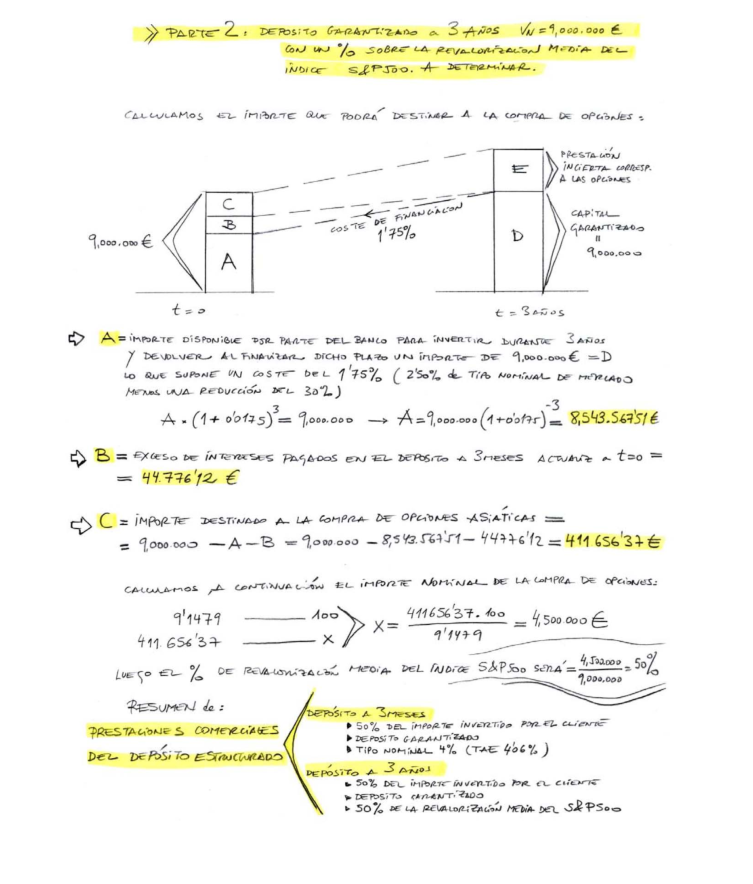 » PARTE 2: DEPOSITO GARANTIZADO a 3 AÑOS VN = 9,000.000 €
CON UN % SOBRE LA REVALORIZACION MEDIA DEL
ÍNDICE S&P500. A DETERMINAR.
CALCULAMOS EL IMPORTE QUE PODRÁ DESTINAR A LA COMPRA DE OPCIONES:
PRESTACIÓN
INCIERTA CORRESP.
A LAS OPCIONES
E
C
B
A
9,000.000 €
COSTE DE FINANCIACION
1'75%
D
CAPITAL
GARANTIZADO
=
9,000.000
t = 0
t = 3 AÑOS
⇨ A = IMPORTE DISPONIBLE POR PARTE DEL BANCO PARA INVERTIR DURANTE 3 AÑOS
Y DEVOLVER AL FINALIZAR DICHO PLAZO UN IMPORTE DE 9,000.000 € = D
LO QUE SUPONE UN COSTE DEL 1'75% (2'50% de TIPO NOMINAL DE MERCADO
MENOS UNA REDUCCIÓN DEL 30%)
A · (1 + 0'0175)³ = 9,000.000 → A = 9,000.000 (1 + 0'0175)⁻³ = 8,543.567'51 €
⇨ B = EXCESO DE INTERESES PAGADOS EN EL DEPOSITO A 3 MESES ACTUALIZ a t=0 =
= 44.776'12 €
⇨ C = IMPORTE DESTINADO A LA COMPRA DE OPCIONES ASIÁTICAS =
= 9,000.000 - A - B = 9,000.000 - 8,543.567'51 - 44776'12 = 411656'37 €
CALCULAMOS A CONTINUACIÓN EL IMPORTE NOMINAL DE LA COMPRA DE OPCIONES:
9'1479 —— 100
411.656'37 —— X
X = 411656'37 · 100 / 9'1479 = 4,500.000 €
LUEGO EL % DE REVALORIZACIÓN MEDIA DEL ÍNDICE S&P500 SERÁ = 4,500.000 / 9,000.000 = 50%
RESUMEN de:
PRESTACIONES COMERCIALES
DEL DEPÓSITO ESTRUCTURADO
DEPÓSITO A 3 MESES
▶ 50% DEL IMPORTE INVERTIDO POR EL CLIENTE
▶ DEPOSITO GARANTIZADO
▶ TIPO NOMINAL 4% (TAE 4'06%)
DEPÓSITO A 3 AÑOS
▶ 50% DEL IMPORTE INVERTIDO POR EL CLIENTE
▶ DEPOSITO GARANTIZADO
▶ 50% DE LA REVALORIZACIÓN MEDIA DEL S&P500